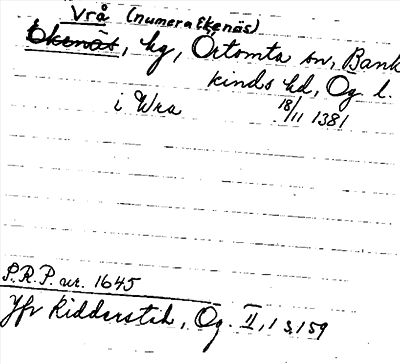 Vrå (numera Ekenäs)
Ekenäs, hg, Örtomta sn, Bank
kinds hd, Ög l.
i Wra 18/11 1381
S.R.P. nr. 1645
Jfr Ridderstad, Ög. II, 1 s, 159